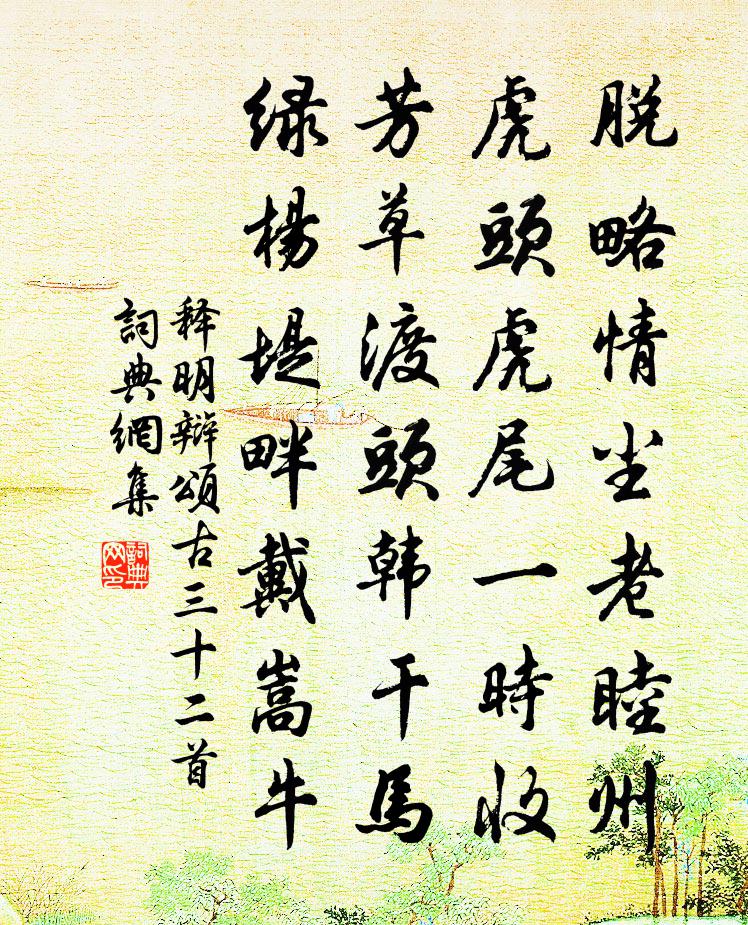 脱略情尘老睦州
虎頭虎尾一時收
芳草渡頭韩干馬
绿楊堤畔戴嵩牛
释明辯頌古三十二首
詞典網集
詞典
网印